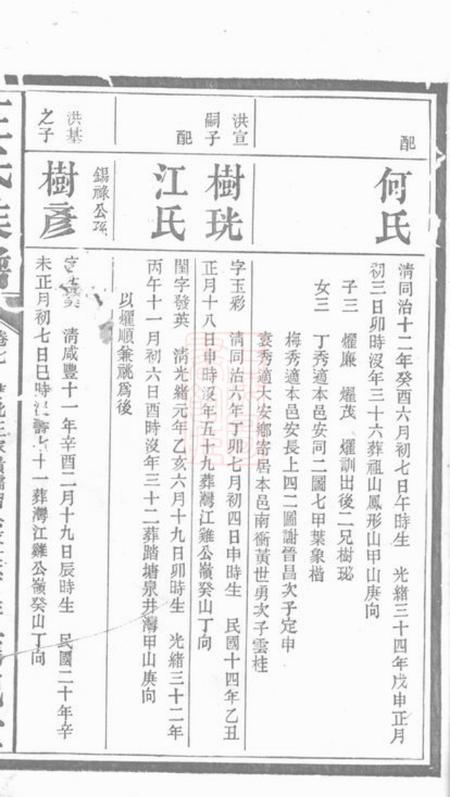 配
何氏
清同治十二年癸酉六月初七日午時生 光緒三十四年戊申正月
初三日卯時沒年三十六葬祖山鳳形山甲山庚向
子三 燿廉 燿茂 燿訓出後二兄樹珌
女三 丁秀適本邑安司二圖七甲葉象楷
梅秀適本邑安長上四二圖謝晉昌次子定申
袁秀適大安鄉寄居本邑南衝黃世勇次子雲桂
洪宣
嗣子
樹珖
字玉彩 清同治六年丁卯七月初四日申時生 民國十四年乙丑
正月十八日申時沒年五十九葬灣江雞公嶺癸山丁向
配
江氏
閨字發英 清光緒元年乙亥六月十九日卯時生 光緒三十二年
丙午十一月初六日酉時沒年三十二葬踏塘泉井灣甲山庚向
以燿順兼祧為後
洪基
之子
錫祿公孫
樹彥
清咸豐十一年辛酉二月十九日辰時生 民國二十年辛
未正月初七日巳時沒壽七十一葬灣江雞公嶺癸山丁向
王氏族譜
卷七